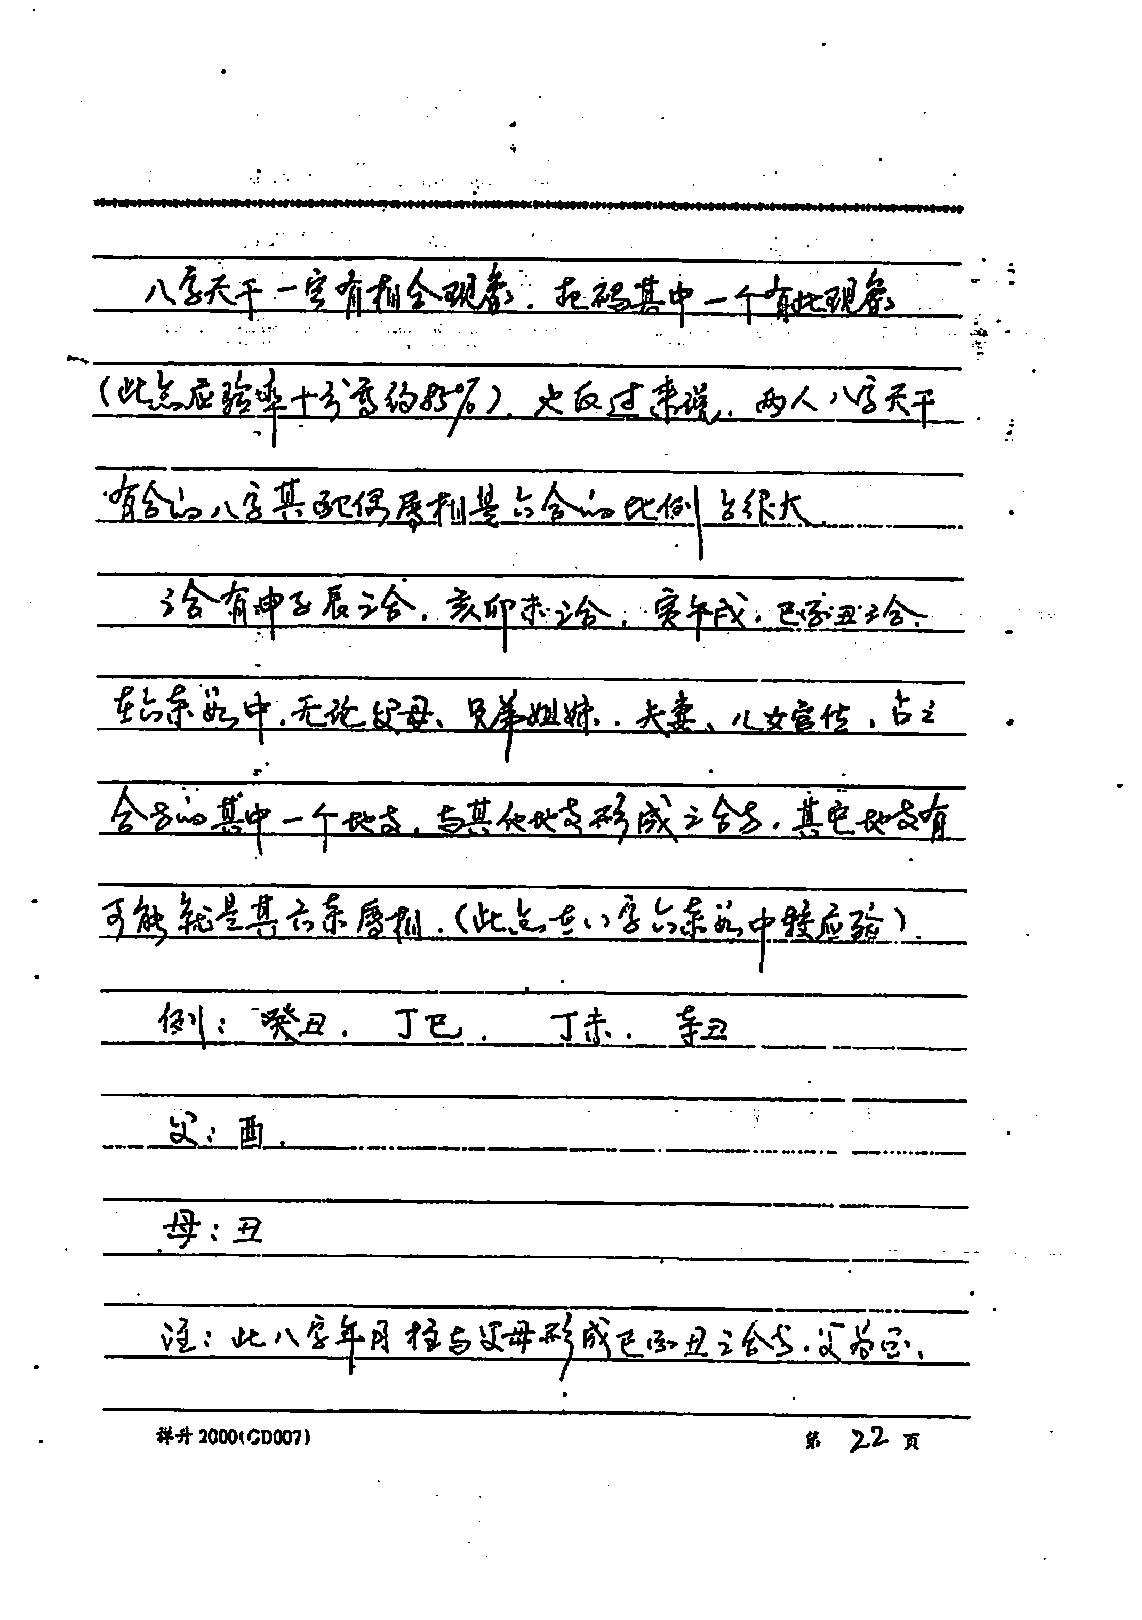 八字天干一定有相合现象.起码其中一个有此现象
(此点应验率十分高约85%).火反过来说.两人八字天干
有合的八字其配偶属相是六合的比例占很大.
三合有申子辰三合.亥卯未三合.寅午戌.巳酉丑三合.
在六亲如中.无论父母、兄弟姐妹.夫妻、儿女宫位.占三
合局的其中一个地支.与其他地支形成三合局.其它地支有
可能就是其六亲属相.(此点在八字六亲如中较应验).
例:癸丑. 丁巳. 丁未. 辛丑
父:酉.
母:丑
注:此八字年月柱与父母形成巳酉丑三合局.父为酉、
祥升2000(CD007) 第 22 页